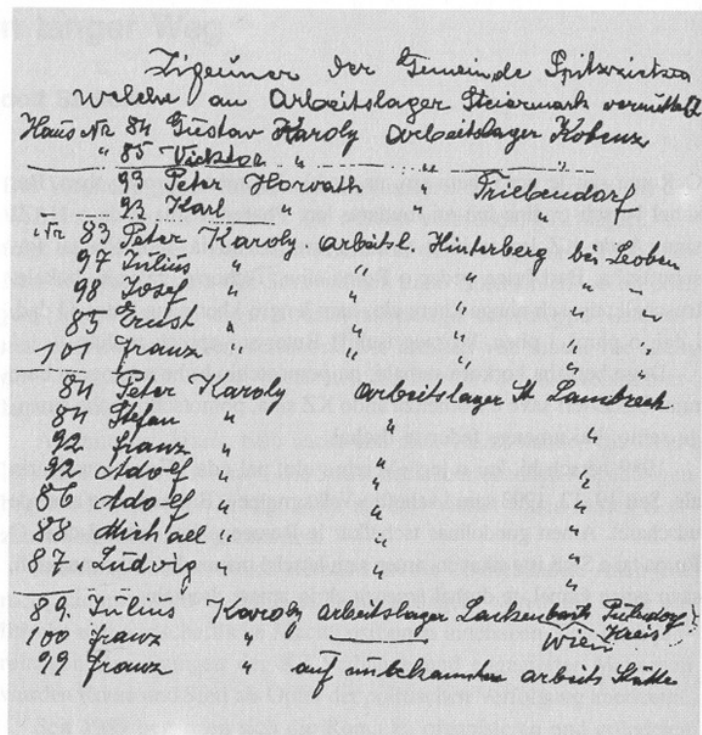 Zigeuner der Gemeinde Spitzzicken
Welche am Arbeitslager Steiermark vermittelt
Haus Nr 84 Gustav Karoly Arbeitslager Kobenz
" 85 Viktor " " "
93 Peter Horvath " Triebendorf
92 Karl " " "
Nr 83 Peter Karoly Arbeitsl. Hinterberg bei Leoben
97 Julius " " " " "
98 Josef " " " " "
85 Ernst " " " " "
101 Franz " " " " "
84 Peter Karoly Arbeitslager St Lambrech
84 Stefan " " "
92 Franz " " "
92 Adolf " " "
86 Adolf " " "
88 Michael " " "
87 Ludvig " " "
89 Julius Karoly Arbeitslager Lackenbach
100 Franz " Wien Kreis
99 Franz " auf unbekannter Arbeits Stätte